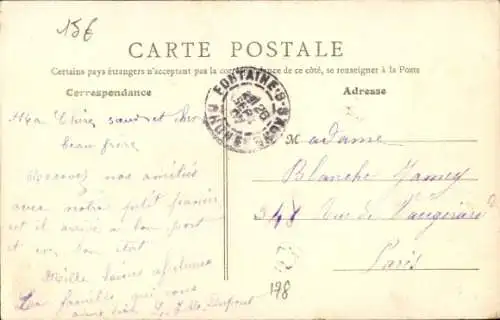 15€
CARTE POSTALE
Certains pays étrangers n'acceptant pas la correspondance de ce côté, se renseigner à la Poste
Correspondance
Adresse
FONTAINE-S-SAONE
RHONE
Ma Chère sœur et cher
beau frère
Recevez nos amitiés
avec notre petit panier
est il arrivé a bon port
et en bon état
Mille
La famille qui vous
aime bien Dupont
Madame
Blanche Jamey
348 Rue de Vaugirard
Paris
178